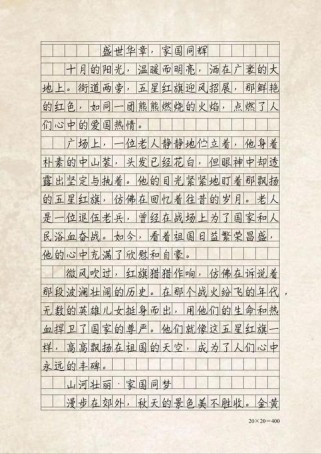 盛世华章，家国同辉
十月的阳光，温暖而明亮，洒在广袤的大
地上。街道两旁，五星红旗迎风招展，那鲜艳
的红色，如同一团熊熊燃烧的火焰，点燃了人
们心中的爱国热情。
广场上，一位老人静静地伫立着，他身着
朴素的中山装，头发已经花白，但眼神中却透
露出坚定与执着。他的目光紧紧地盯着那飘扬
的五星红旗，仿佛在回忆着往昔的岁月。老人
是一位退伍老兵，曾经在战场上为了国家和人
民浴血奋战。如今，看着祖国日益繁荣昌盛，
他的心中充满了欣慰和自豪。
微风吹过，红旗猎猎作响，仿佛在诉说着
那段波澜壮阔的历史。在那个战火纷飞的年代，
无数的英雄儿女挺身而出，用他们的生命和热
血捍卫了国家的尊严。他们就像这五星红旗一
样，高高飘扬在祖国的天空，成为了人们心中
永远的丰碑。
山河壮丽·家国同梦
漫步在郊外，秋天的景色美不胜收。金黄
20×20=400